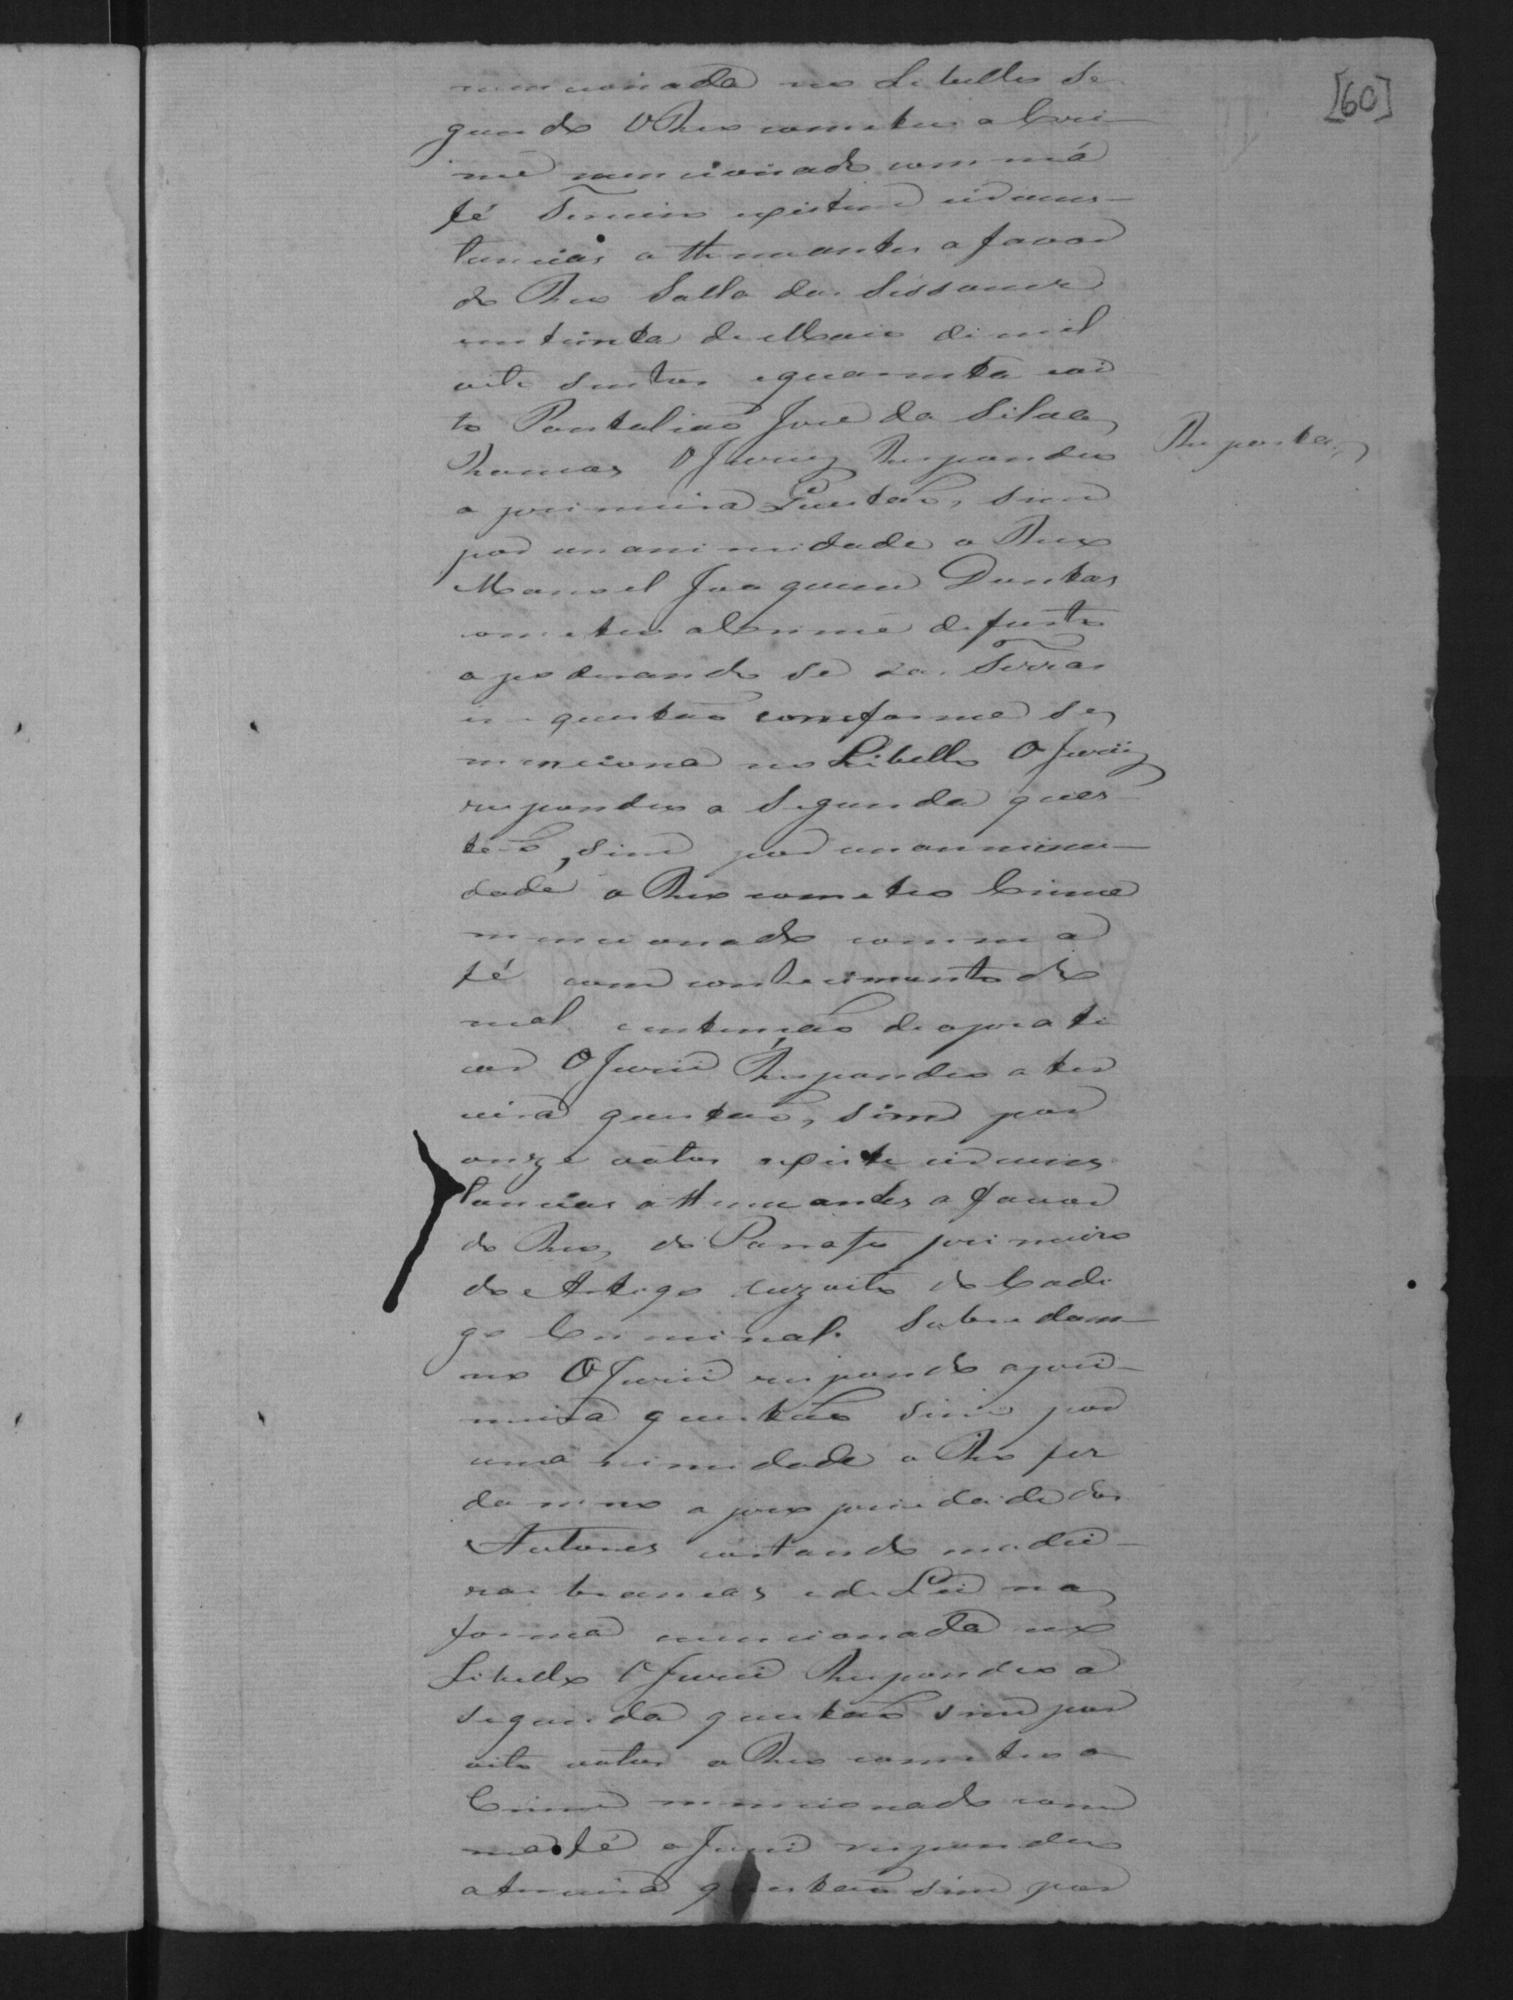 [60]
mencionada no Libello Se
gundo O Reo cometeu o Cri-
me mencionado com má
fé Terceiro existem circuns-
tancias attenuantes a favor
do Reo Salla das Sessoens
em trinta de Maio de mil
oito sentos e quarenta e oi
to Pantalião José da Silva
Ramos O Jury Respondeo
Resposta
a primeira Questão, sim
por unanimidade o Reo
Manoel Joaquim Dantas
cometeu o Crime de furto
apoderando se das Terras
em questão comforme se
menciona no Libello O Jury
respondeo a Segunda ques
tão, sim por unanimi-
dade o Reo cometeo Crime
mencionado com má
fé com conhecimento do
mal e intenção de o prati
car O Juri Respondeo a ter
ceira questão, sim por
onze votos existe circuns
tancias attenuantes a favor
do Reo, do Parrafo primeiro
do Artigo dezoito do Codi
go Criminal. Sobre dam-
no O Juri respondo a pri-
meira questão sim por
unanimidade o Reo fez
damno a propriedade dos
Autores cortando madei-
ras brancas e de Lei na
forma mencionada no
Libello O Juri Respondeo a
segunda questão sim por
oito votos o Reo cometeo o
Crime mencionado com
má fé o Juri respondeo
a terceira questão sim por